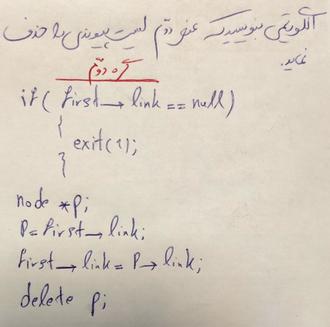 الگوریتمی بنویسید که عنصر دوم لیست پیوندی را حذف
نماید.
گره دوم
if( first → link == null)
{
exit(1);
}
node *p;
P = first → link;
first → link = P → link;
delete p;